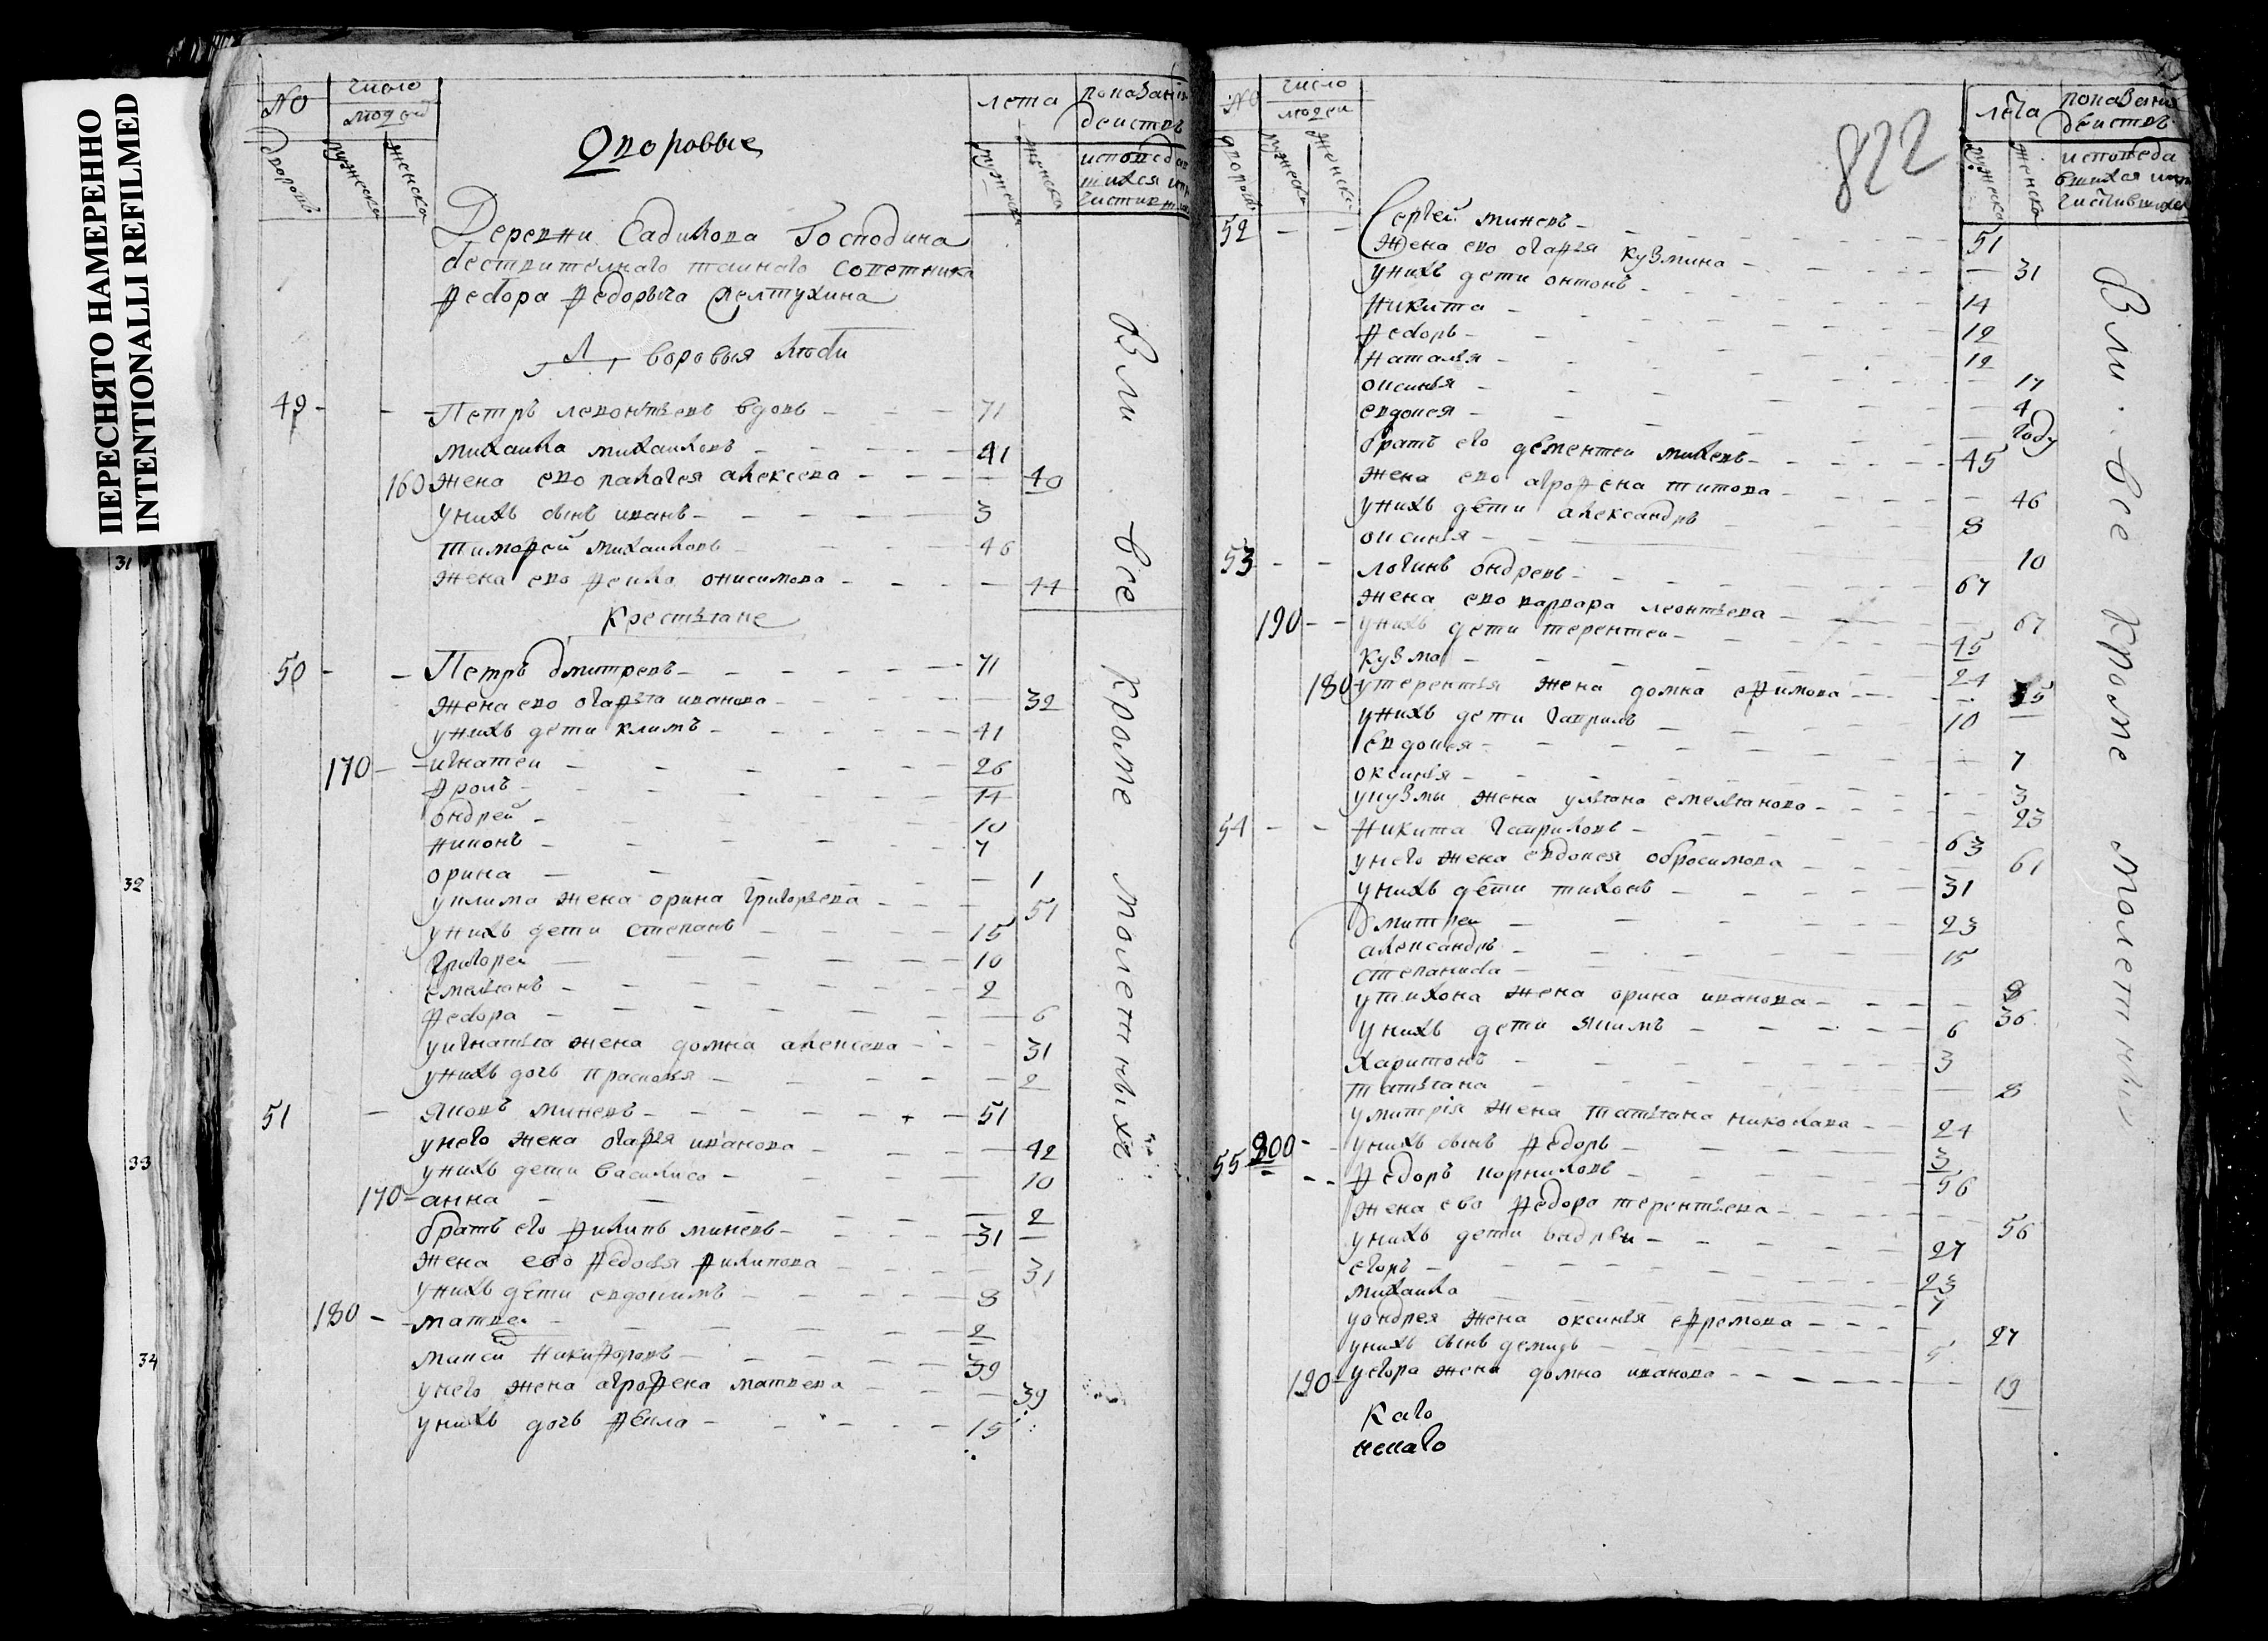 ПЕРЕСНЯТО НАМЕРЕННО
INTENTIONALLI REFILMED
31
32
33
34
No дворовъ
число людей
мужеска
женска
Дворовые
лета
мужеска
женска
показание действъ
исповедав
шихся и при
частивших
Деревни Садикова Господина
действителнаго таинаго советника
федора федорыча желтухина
Дворовыя люди
49 - - - Петръ левонтьевъ вдовъ - - - 71
михаила михаиловъ - - - 41
160 жена ево палагея алексеева - - - 40
у нихъ сынъ иванъ - - - 3
тимофей михаиловъ - - - 46
жена ево фекла онисимова - - - 44
Крестьяне
50 - - Петръ дмитревъ - - - 71
жена ево агафья иванова - - - 32
у нихъ дети климъ - - - 41
170 - - игнатеи - - - 26
фролъ - - - 14
ондрей - - - 10
никонъ - - - 7
орина - - - 1
у клима жена орина григорьева - - - 51
у нихъ дети степанъ - - - 15
григореи - - - 10
емельянъ - - - 2
федора - - - 6
у игнатья жена домна алексеева - - - 31
у нихъ дочь прасковья - - - 2
51 - яковъ минеевъ - - - 51
у него жена огафья иванова - - - 42
у нихъ дети василиса - - - 10
170 - анна - - - 2
братъ его филипъ минеевъ - - - 31
жена ево федосья филипова - - - 31
у нихъ дети евдокимъ - - - 8
180 - матвеи - - - 2
никифоровъ - - - 39
у него жена аграфена матвеева - - - 39
у нихъ дочь фекла - - - 15
Вли все кроме молетныхъ
822
No дворовъ
число людеи
мужеска
женска
лета
мужеска
женска
показание действъ
исповеда
вшихся и при
частившихся
52 - - Сергей минеевъ - - - 51
жена ево огафья кузмина - - - 31
у нихъ дети онтонъ - - - 14
никита - - - 12
федоръ - - - 12
наталья - - - 17
оксинья - - - 4
евдокея - - - году
братъ его дементеи - - - 45
жена ево аграфена титова - - - 46
у нихъ дети александръ - - - 8
оксинья - - - 10
53 - - логинъ ондревъ - - - 67
жена ево варвара леонтьева - - - 67
190 - - у нихъ дети терентеи - - - 45
кузма - - - 24
180 у терентья жена домна ефимова - - - 35
у нихъ дети гаврилъ - - - 10
евдокея - - - 7
оксинья - - - 3
у кузмы жена ульяна емельянова - - - 23
54 - - никита гавриловъ - - - 63
у него жена евдокея обросимова - - - 61
у нихъ дети тихонъ - - - 31
дмитреи - - - 23
александръ - - - 15
степанида - - - 8
у тихона жена орина иванова - - - 36
у нихъ дети якимъ - - - 6
харитонъ - - - 3
татьяна - - - 8
у митрія жена татьяна николаева - - - 24
200 - у нихъ сынъ федоръ - - - 3
55 - - федоръ корниловъ - - - 56
жена ево федора терентьева - - - 56
у нихъ дети ондреи - - - 27
егоръ - - - 23
михаила - - - 7
у ондрея жена оксинья ефремова - - - 27
у нихъ сынъ демидъ - - - 5
190 - у егора жена домна иванова - - - 19
каго
некаго
Вли все кроме молетныхъ